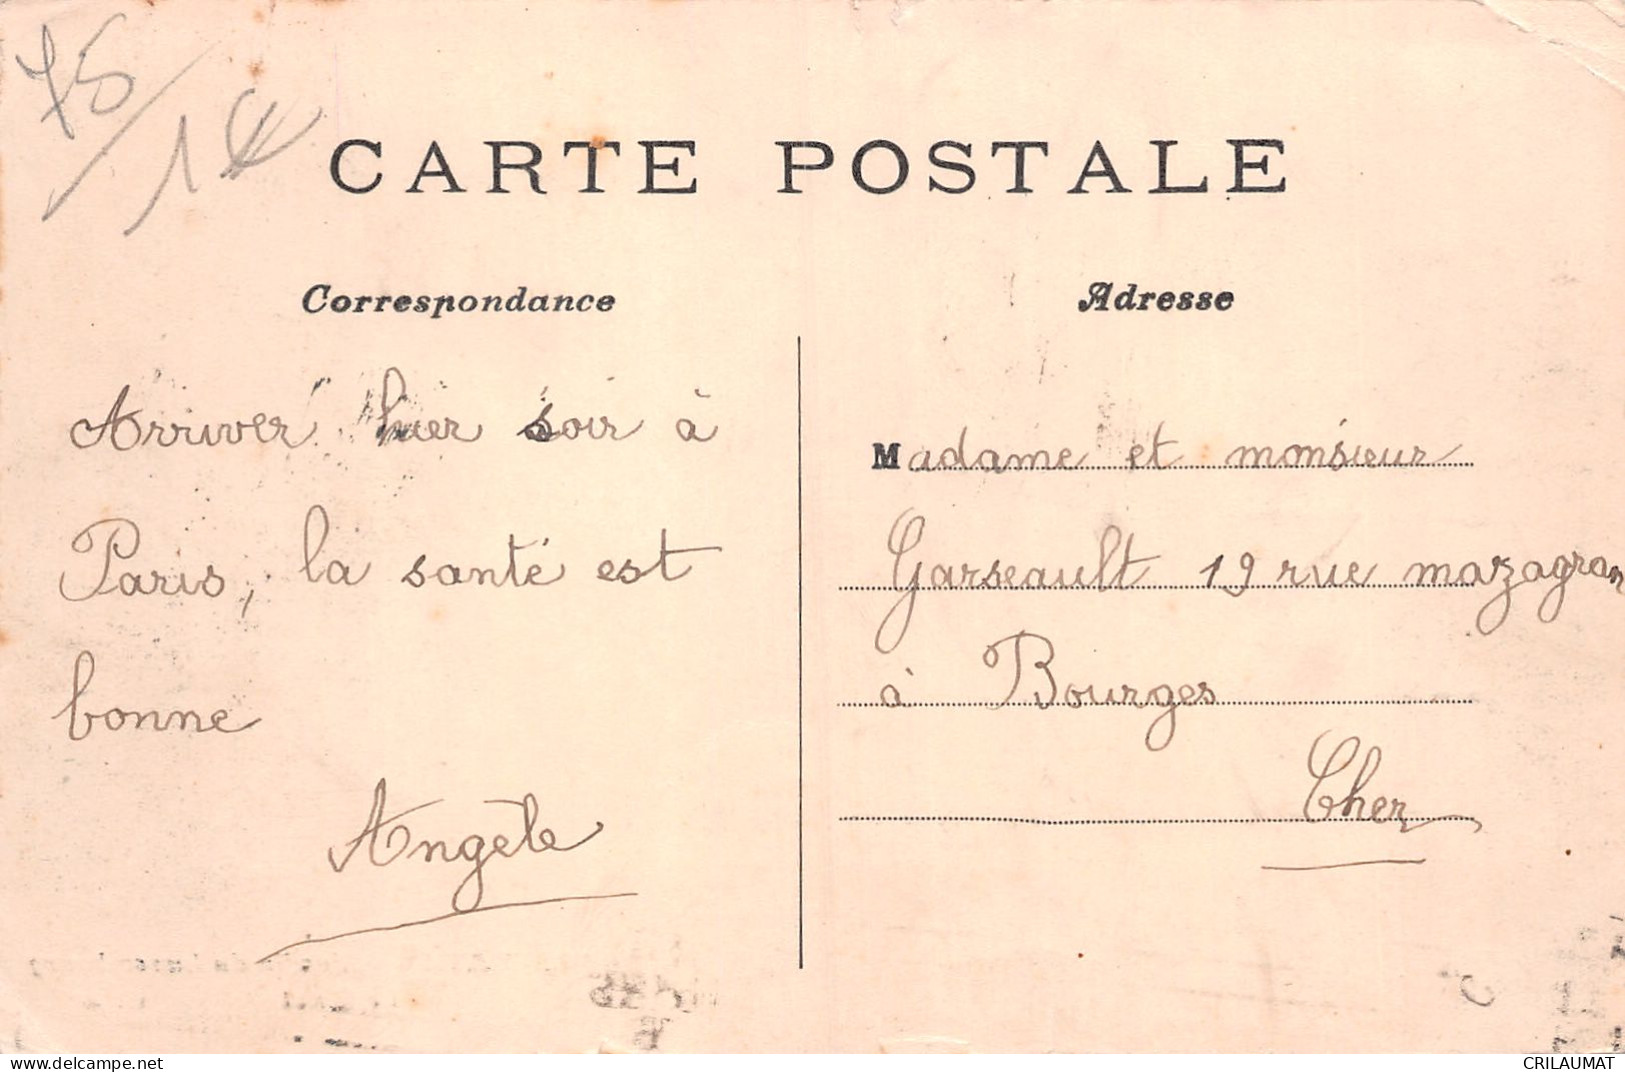 75
1€
CARTE POSTALE
Correspondance
Arriver hier soir à
Paris, la santé est
bonne
Angèle
Adresse
Madame et monsieur
Garseault 19 rue mazagran
à Bourges
Cher
www.delcampe.net
CRILAUMAT